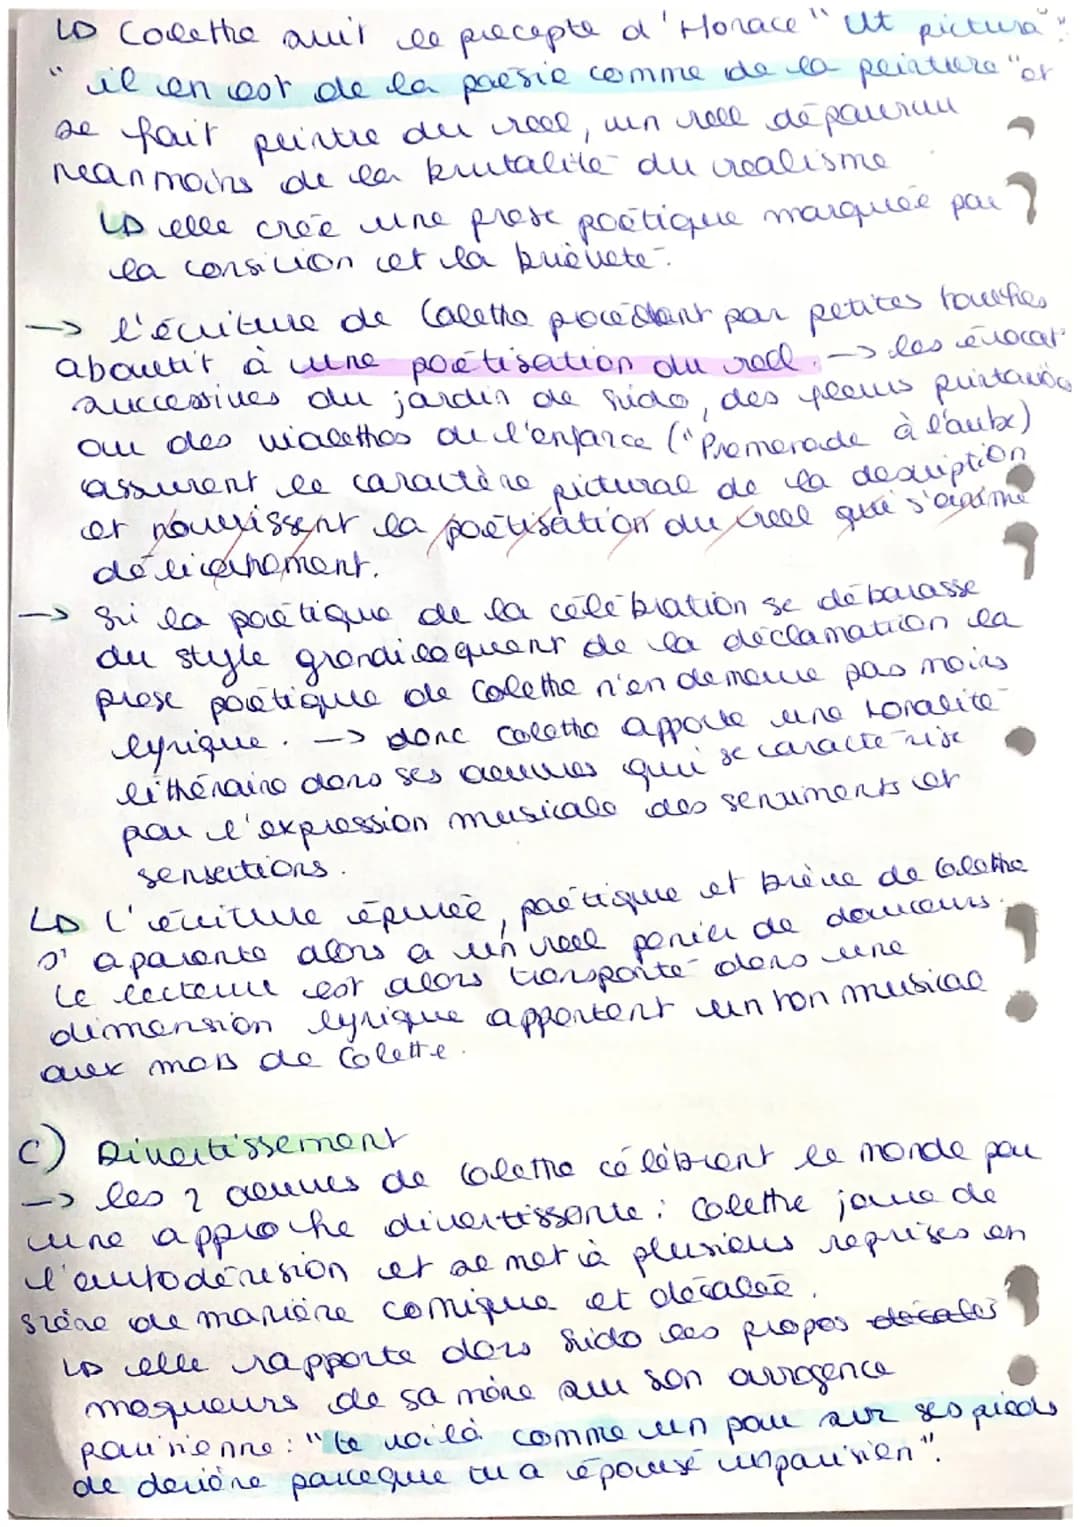 ↳ Colette suit le precepte d'Horace "Ut pictura":
"il en est de la poésie comme de la peinture" et
se fait peintre du reel, un reel dépourvu
neanmoins de la brutalité du realisme
↳ elle crée une prose poétique marquée par
la consicion et la brièveté.
→ l'écriture de Colette procédant par petites touches
aboutit à une poétisation du reel. → les évocat°
successives du jardin de Sido, des fleurs printanières
ou des violettes de l'enfance ("Promenade à l'aube)
assurent le caractère pictural de la description
et nourissent la poétisation du reel qui s'anime
délicatement.
→ Si la poétique de la célébration se débarasse
du style grandiloquent de la déclamation la
prose poétique de Colette n'en demeure pas moins
lyrique. → donc Colette apporte une tonalité
littéraire dans ses œuvres qui se caractérise
par l'expression musicale des sentiments et
sensations.
↳ L'écriture épurée, poétique et brève de Colette
s'aparente alors a un reel panier de douceurs.
Le lecteur est alors transporté dans une
dimension lyrique apportent un ton musical
aux mots de Colette.
C) Divertissement
→ les 2 œuvres de Colette célèbrent le monde par
une approche divertissante : Colette joue de
l'autodérision et se met à plusieurs reprises en
scène de manière comique et décalée.
↳ elle rapporte dans Sido les propos décalés
moqueurs de sa mère sur son arrogence
parisienne : "te voilà comme un pou sur ses pieds
de derière parceque tu a épousé un parisien".